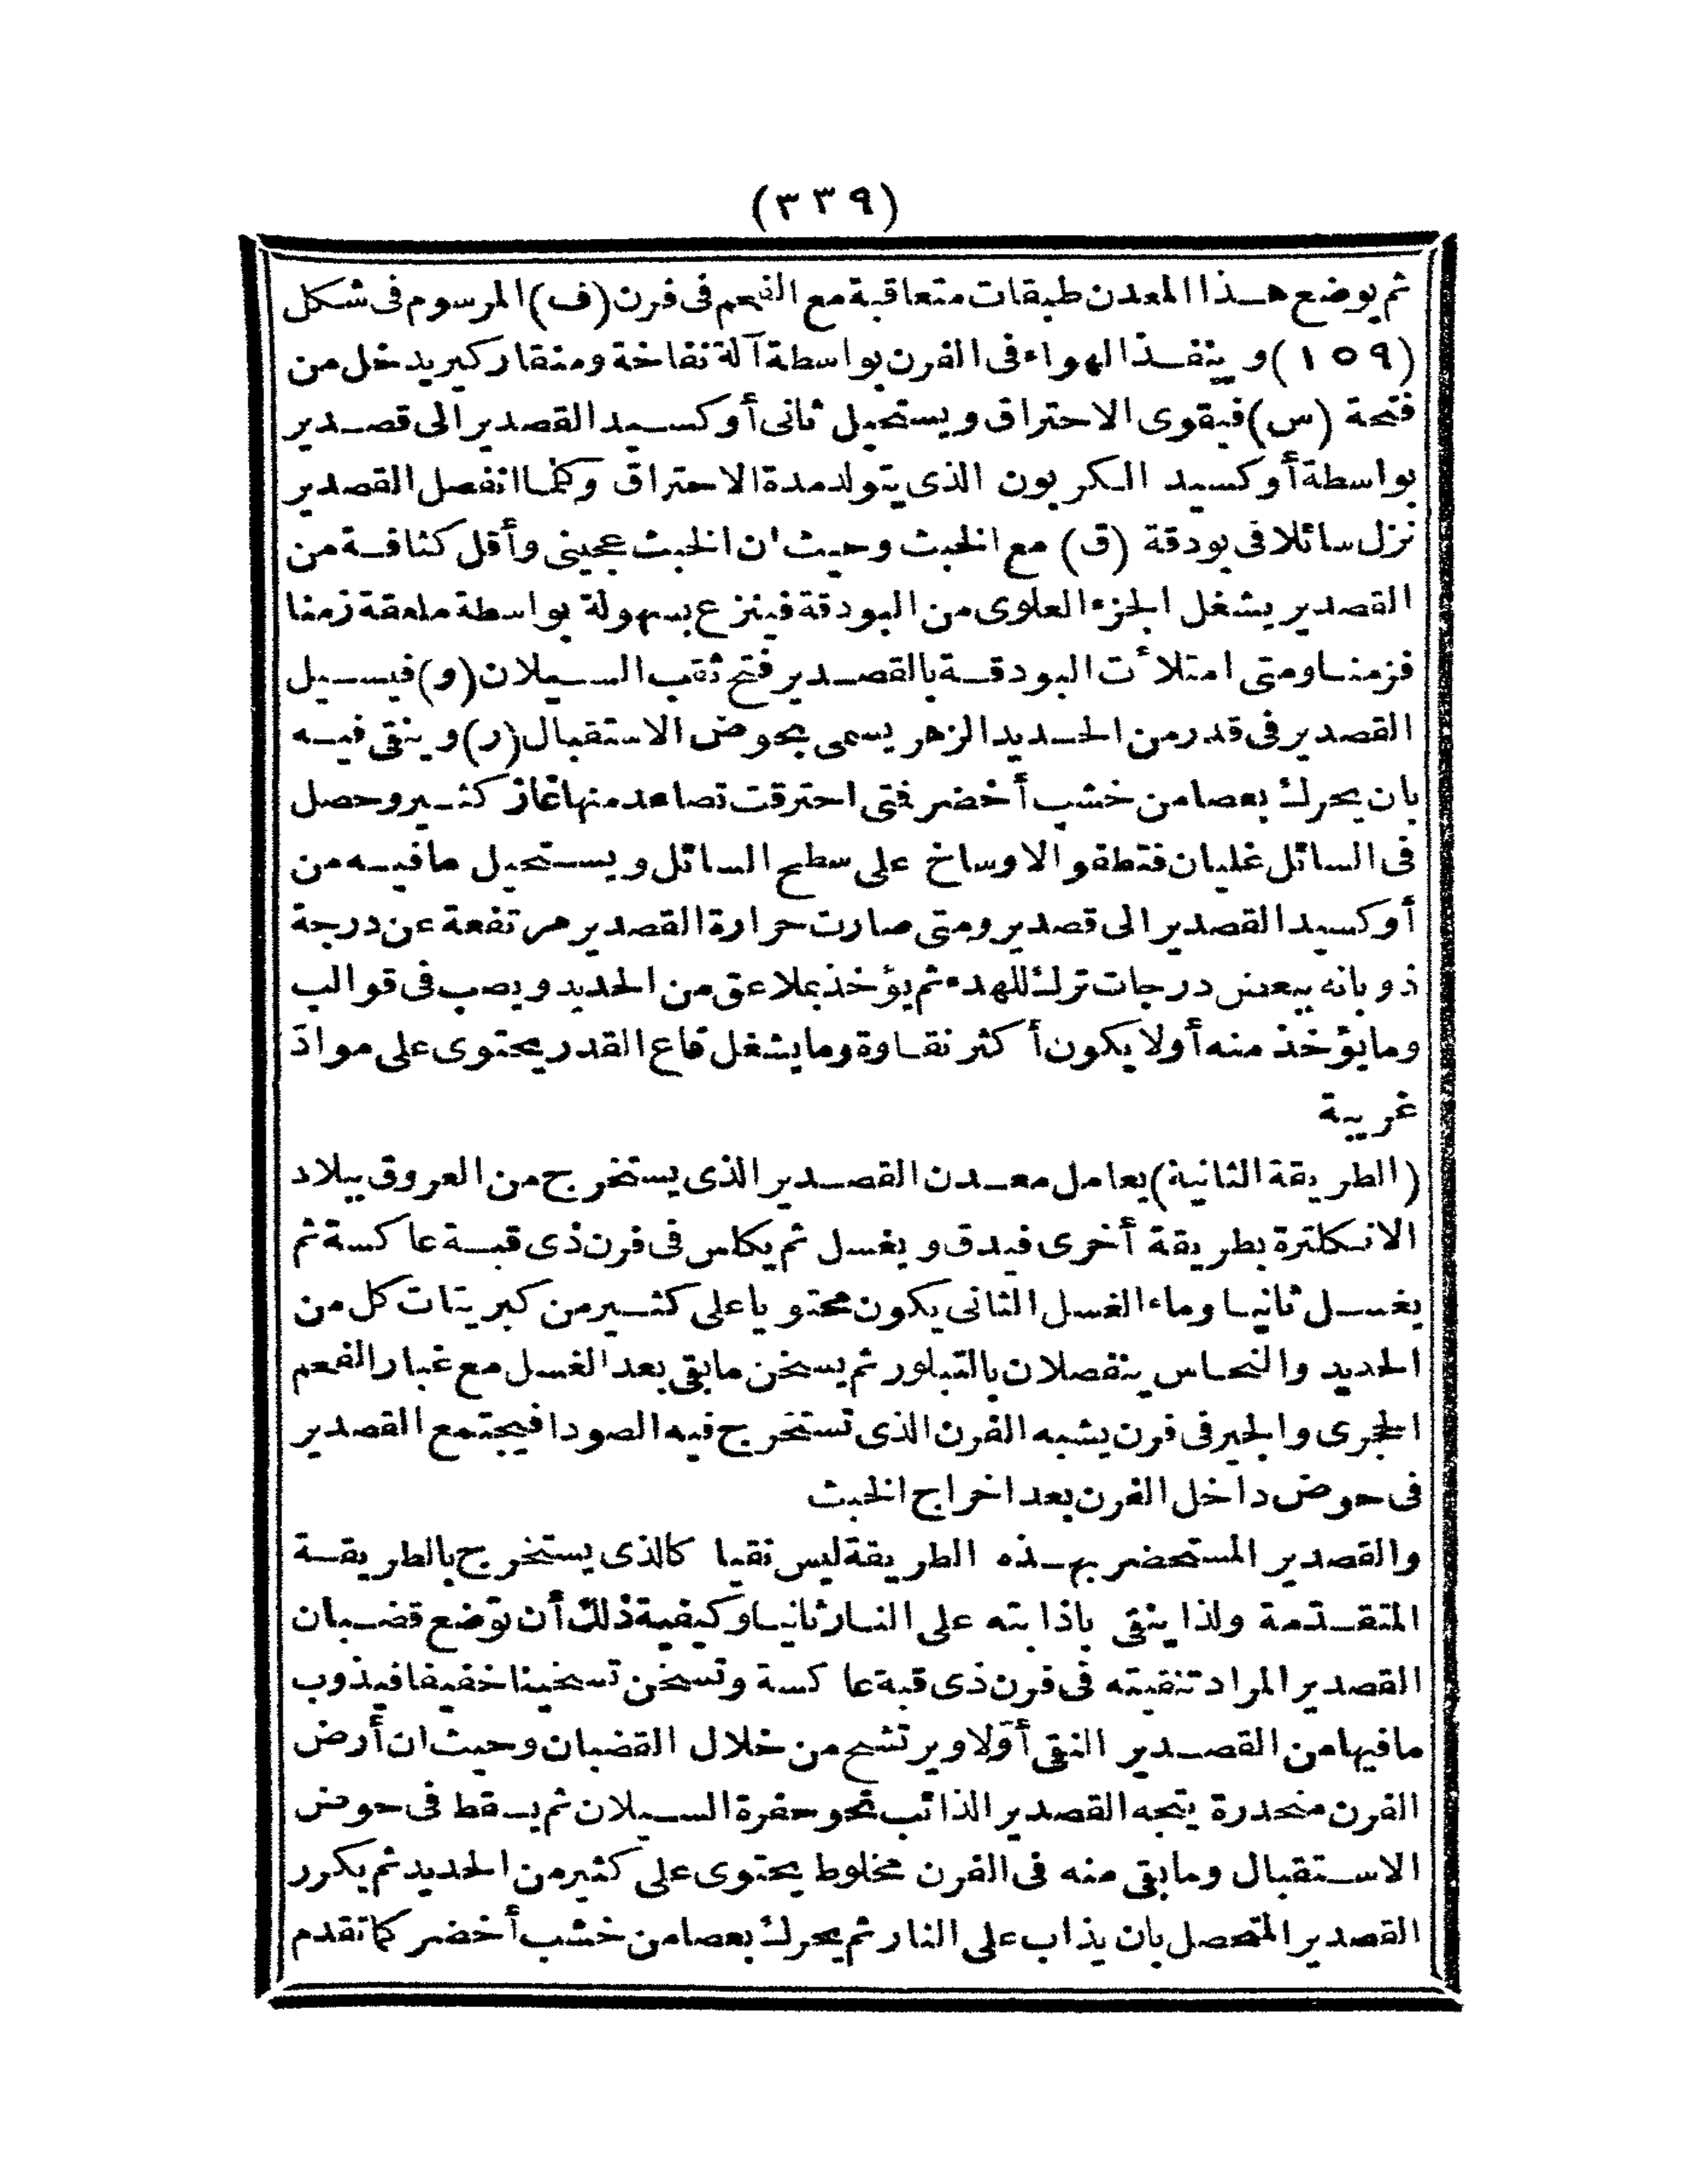 (٣٣٩)
ثم يوضع هذا المعدن طبقات متعاقبة مع الفحم فى فرن (ف) المرسوم فى شكل
(١٥٩) وينفذ الهواء فى الفرن بواسطة آلة نفاخة ومنقار كبير يدخل من
فتحة (س) فيقوى الاحتراق ويستحيل ثانى أوكسيد القصدير الى قصدير
بواسطة أوكسيد الكربون الذى يتولد مدة الاحتراق وكلما انفصل القصدير
نزل سائلا فى بودقة (ق) مع الخبث وحيث ان الخبث عجينى وأقل كثافة من
القصدير يشغل الجزء العلوى من البودقة فينزع بسهولة بواسطة ملعقة زمنا
فزمنا ومتى امتلأت البودقة بالقصدير فتح ثقب السيلان (و) فيسيل
القصدير فى قدر من الحديد الزهر يسمى بحوض الاستقبال (ر) وينقى فيه
بان يحرك بعصا من خشب أخضر فتى احترقت تصاعد منها غاز كثير وحصل
فى السائل غليان فتطفو الاوساخ على سطح السائل ويستحيل ما فيه من
أوكسيد القصدير الى قصدير ومتى صارت حرارة القصدير مرتفعة عن درجة
ذوبانه ببعض درجات ترك للهدء ثم يؤخذ بملاعق من الحديد ويصب فى قوالب
وما يؤخذ منه أولا يكون أكثر نقاوة وما يشغل قاع القدر يحتوى على موادّ
غريبة
(الطريقة الثانية) يعامل معدن القصدير الذى يستخرج من العروق ببلاد
الانكلترة بطريقة أخرى فيدق ويغسل ثم يكلس فى فرن ذى قبة عاكسة ثم
يغسل ثانيا وماء الغسل الثانى يكون محتويا على كثير من كبريتات كل من
الحديد والنحاس ينفصلان بالتبلور ثم يسخن ما بقى بعد الغسل مع غبار الفحم
الحجرى والجير فى فرن يشبه الفرن الذى تستخرج فيه الصودا فيجتمع القصدير
فى حوض داخل الفرن بعد اخراج الخبث
والقصدير المستحضر بهذه الطريقة ليس نقيا كالذى يستخرج بالطريقة
المتقدّمة ولذا ينقى باذابته على النار ثانيا وكيفية ذلك أن توضع قضبان
القصدير المراد تنقيته فى فرن ذى قبة عاكسة وتسخن تسخينا خفيفا فيذوب
ما فيها من القصدير النقى أوّلا ويرتشح من خلال القضبان وحيث ان أرض
الفرن منحدرة يتجه القصدير الذائب نحو حفرة السيلان ثم يسقط فى حوض
الاستقبال وما بقى منه فى الفرن مخلوط يحتوى على كثير من الحديد ثم يكرر
القصدير المتحصل بان يذاب على النار ثم يحرك بعصا من خشب أخضر كما تقدم